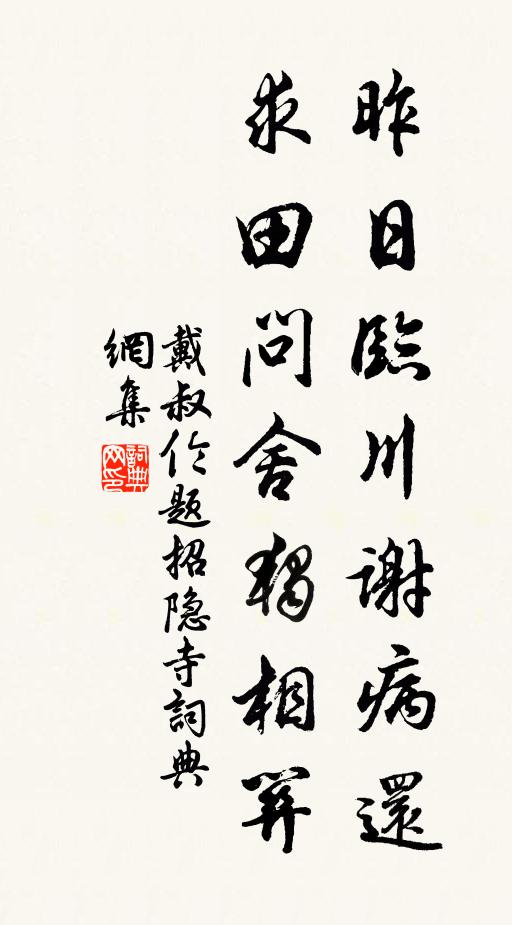 昨日臨川謝病還
求田問舍獨相關
戴叔伦题招隐寺詞典
網集
詞典
网印